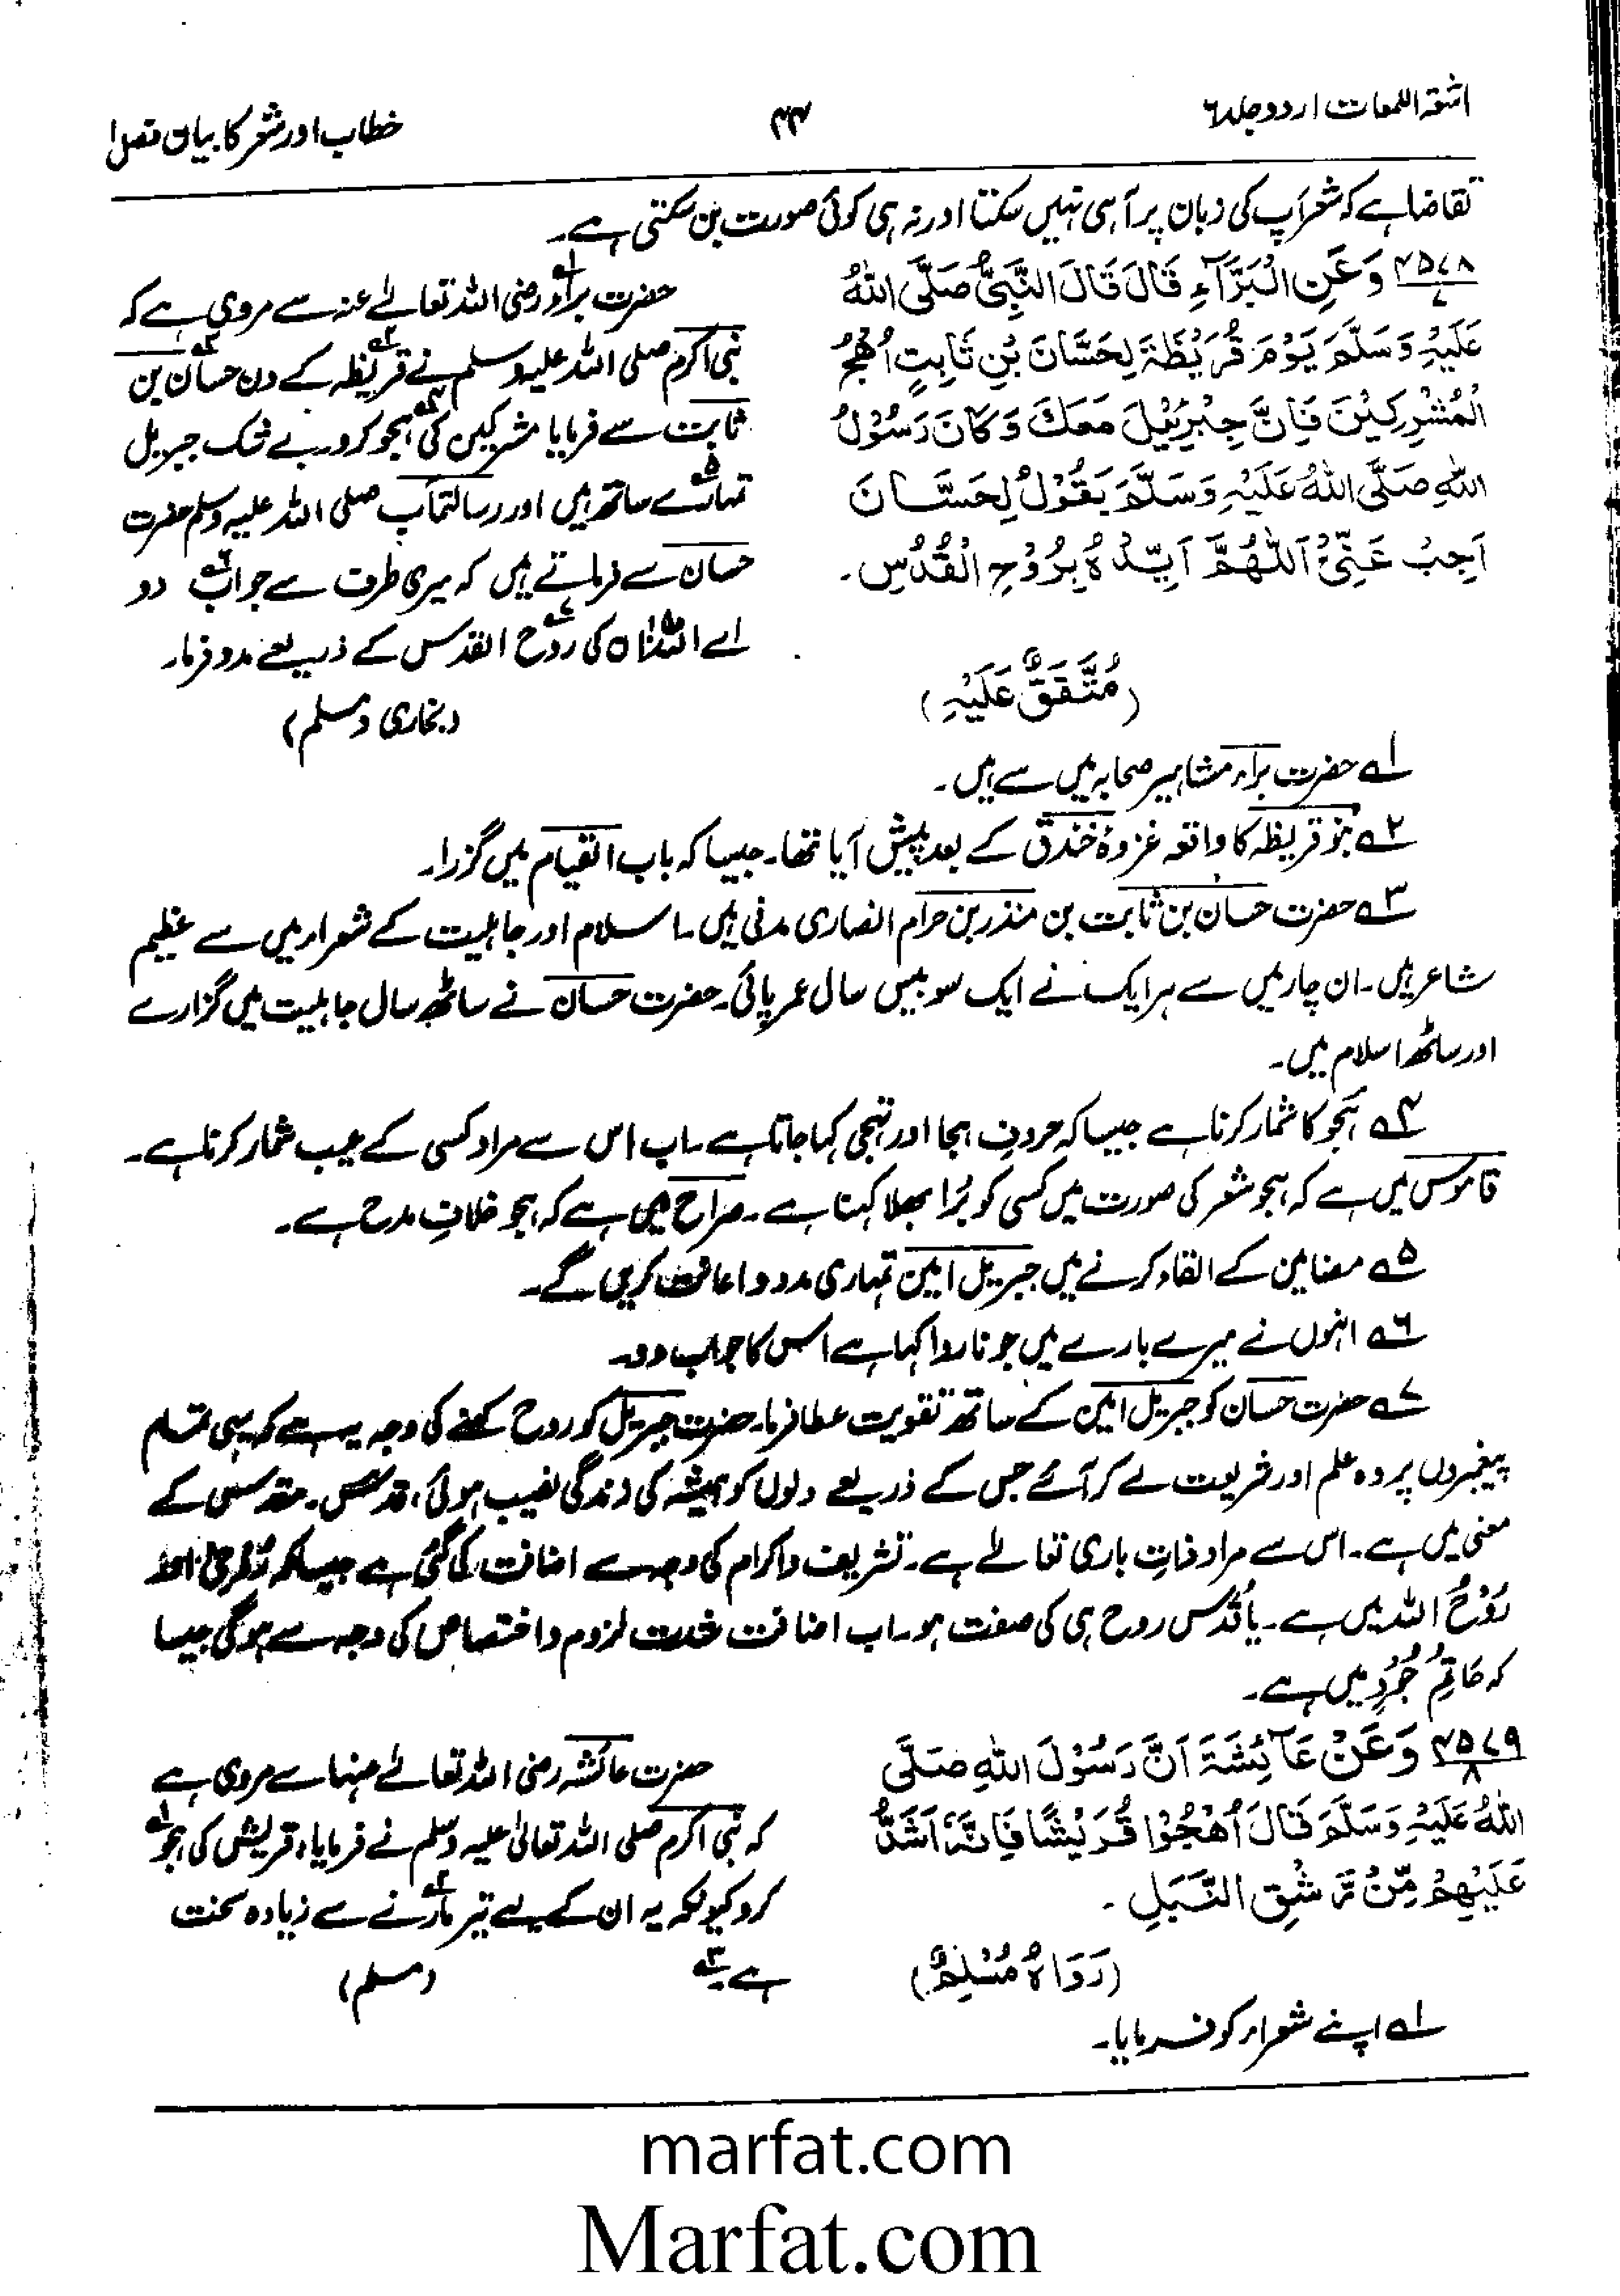 اشعۃ اللمعات اردو جلد ۶
۴۴
خطاب اور شعر کا بیان فصل ا
تقاضا ہے کہ شعر آپ کی زبان پر آ ہی نہیں سکتا اور نہ ہی کوئی صورت بن سکتی ہے۔
۴۵۷۸ وَعَنِ الْبَرَّآءِ قَالَ قَالَ النَّبِيُّ صَلَّى اللهُ
۷
عَلَيْهِ وَسَلَّمَ يَوْمَ قُرَيْظَةَ لِحَسَّانَ بْنِ ثَابِتٍ اُهْجُ
الْمُشْرِكِيْنَ فَاِنَّ جِبْرِئِيْلَ مَعَكَ وَكَانَ رَسُوْلُ
اللهِ صَلَّى اللهُ عَلَيْهِ وَسَلَّمَ يَقُوْلُ لِحَسَّانَ
اَجِبْ عَنِّيْ اَللّٰهُمَّ اَيِّدْهُ بِرُوْحِ الْقُدُسِ۔
(مُتَّفَقٌ عَلَيْهِ)
حضرت براء۱؎ رضی اللہ تعالےٰ عنہ سے مروی ہے کہ
نبی اکرم صلی اللہ علیہ وسلم نے قریظہ۲؎ کے دن حسان۳؎ بن
ثابت سے فرمایا مشرکین کی ہجو۴؎ کرو۔ بے شک جبریل
تمہارے ساتھ۵؎ ہیں اور رسالتمآب صلی اللہ علیہ وسلم حضرت
حسان سے فرماتے ہیں کہ میری طرف سے جواب۶؎ دو
اے اللہ! ان کی روح۷؎ القدس کے ذریعے مدد فرما۔
(بخاری و مسلم)
۱؎ حضرت براء مشاہیر صحابہ میں سے ہیں۔
۲؎ بنو قریظہ کا واقعہ غزوۂ خندق کے بعد پیش آیا تھا۔ جیسا کہ باب القیام میں گزرا۔
۳؎ حضرت حسان بن ثابت بن منذر بن حرام انصاری مدنی ہیں۔ اسلام اور جاہلیت کے شعراء میں سے عظیم
شاعر ہیں۔ ان چار میں سے ہر ایک نے ایک سو بیس سال عمر پائی۔ حضرت حسان نے ساٹھ سال جاہلیت میں گزارے
اور ساٹھ اسلام میں۔
۴؎ ہجو کا شمار کرنا ہے جیسا کہ حروف ہجا اور تہجی کہا جاتا ہے۔ اب اس سے مراد کسی کے عیب شمار کرنا ہے۔
قاموس میں ہے کہ ہجو شعر کی صورت میں کسی کو بُرا بھلا کہنا ہے۔ صراح میں ہے کہ ہجو خلافِ مدح ہے۔
۵؎ مضامین کے القاء کرنے میں جبریل امین تمہاری مدد و اعانت کریں گے۔
۶؎ انہوں نے میرے بارے میں جو ناروا کہا ہے اس کا جواب دو۔
۷؎ حضرت حسان کو جبریل امین کے ساتھ تقویت عطا فرما۔ حضرت جبریل کو روح کہنے کی وجہ یہ ہے کہ یہی تمام
پیغمبروں پر وہ علم اور شریعت لے کر آئے جس کے ذریعے دلوں کو ہمیشہ کی زندگی نصیب ہوئی، قدس۔ مقدس کے
معنی میں ہے۔ اس سے مراد ذاتِ باری تعالےٰ ہے۔ تشریف و اکرام کی وجہ سے اضافت کی گئی ہے جیسا کہ
رُوْحُ اللہ میں ہے۔ یا قُدُس روح ہی کی صفت ہو۔ اب اضافت شدت لزوم و اختصاص کی وجہ سے ہو گی جیسا
کہ حَاتِمُ جُوْدٍ میں ہے۔
۴۵۷۹ وَعَنْ عَآئِشَةَ اَنَّ رَسُوْلَ اللهِ صَلَّى
۸
اللهُ عَلَيْهِ وَسَلَّمَ قَالَ اُهْجُوْا قُرَيْشًا فَاِنَّهٗ اَشَدُّ
عَلَيْهِمْ مِّنْ رَّشْقِ النَّبَلِ۔
(رَوَاهُ مُسْلِمٌ)
حضرت عائشہ رضی اللہ تعالےٰ عنہا سے مروی ہے
کہ نبی اکرم صلی اللہ تعالیٰ علیہ وسلم نے فرمایا، قریش کی ہجو۱؎
کرو کیونکہ یہ ان کے لیے تیر مارنے۲؎ سے زیادہ سخت
ہے۔۳؎ (مسلم)
۱؎ اپنے شعراء کو فرمایا۔
marfat.com
Marfat.com